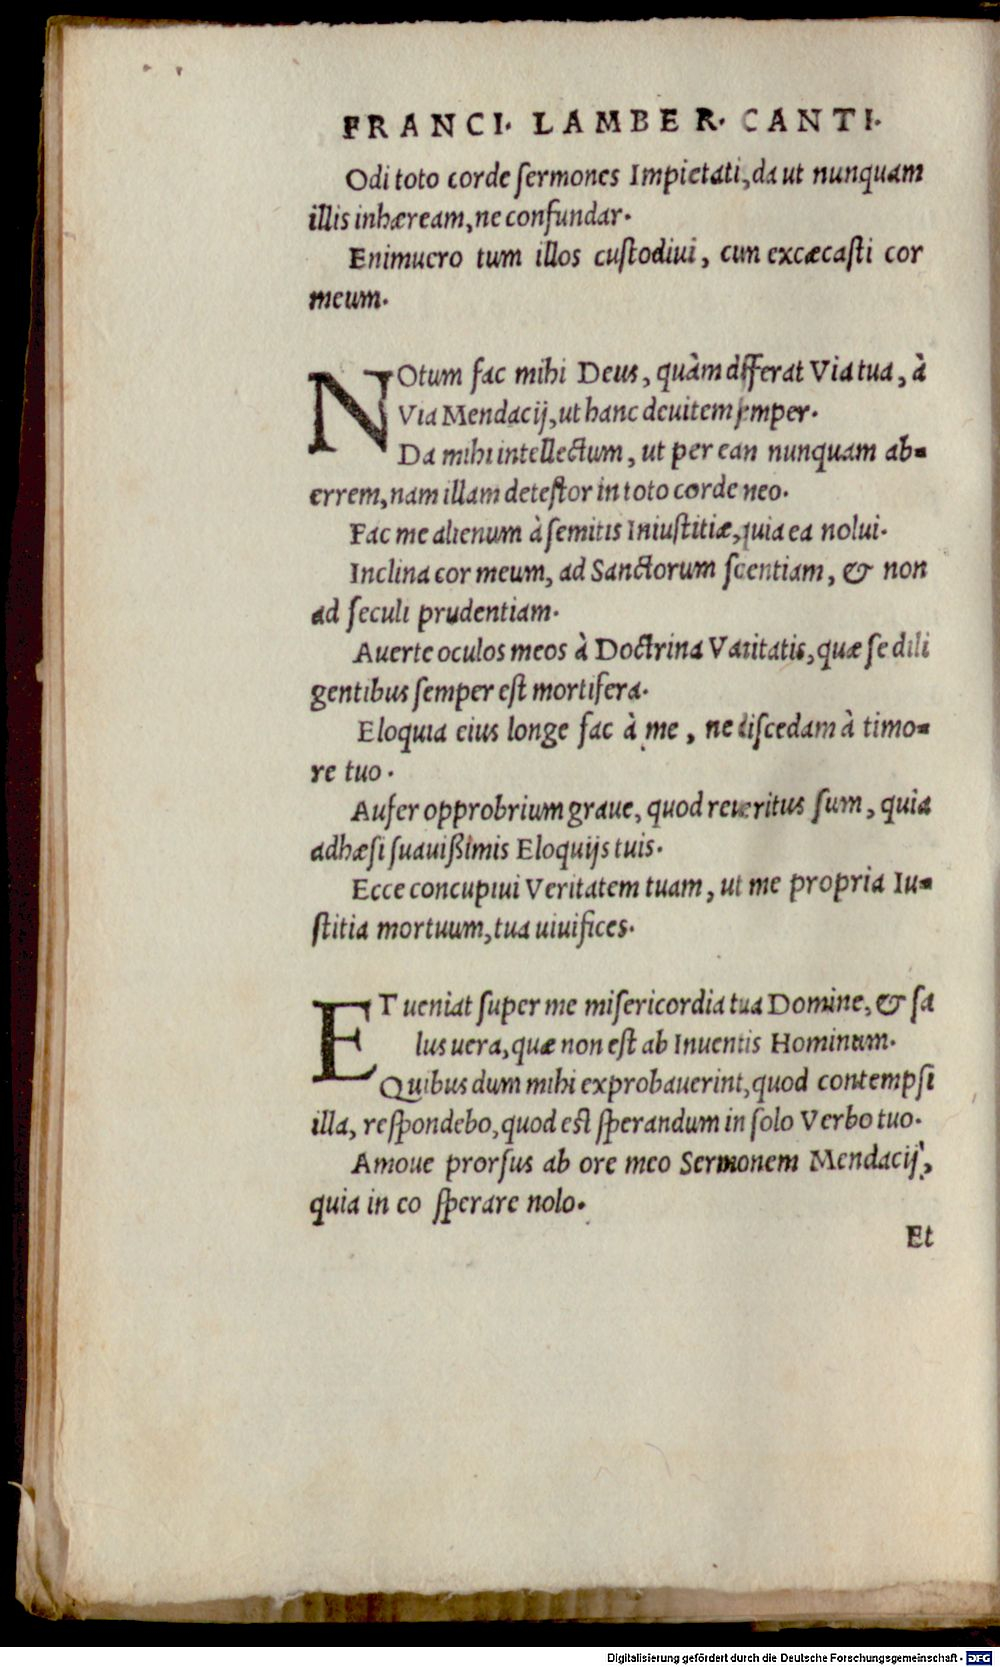 FRANCI. LAMBER. CANTI.
Odi toto corde ſermones Impietati, da ut nunquam
illis inhæream, ne confundar.
Enimuero tum illos cuſtodiui, cum excæcaſti cor
meum.
NOtum fac mihi Deus, quàm differat Via tua, à
Via Mendacij, ut hanc deuitem ſemper.
Da mihi intellectum, ut per ean nunquam ab-
errem, nam illam deteſtor in toto corde neo.
Fac me alienum à ſemitis Iniuſtitiæ, quia ea nolui.
Inclina cor meum, ad Sanctorum ſcentiam, & non
ad ſeculi prudentiam.
Auerte oculos meos à Doctrina Vanitatis, quæ ſe dili
gentibus ſemper eſt mortifera.
Eloquia eius longe fac à me, ne diſcedam à timo-
re tuo.
Aufer opprobrium graue, quod reueritus ſum, quia
adhæſi ſuauißimis Eloquijs tuis.
Ecce concupiui Veritatem tuam, ut me propria Iu-
ſtitia mortuum, tua uiuifices.
ET ueniat ſuper me miſericordia tua Domine, & ſa
lus uera, quæ non eſt ab Inuentis Hominum.
Quibus dum mihi exprobauerint, quod contempſi
illa, reſpondebo, quod eſt ſperandum in ſolo Verbo tuo.
Amoue prorſus ab ore meo Sermonem Mendacij,
quia in eo ſperare nolo.
Et
Digitalisierung gefördert durch die Deutsche Forschungsgemeinschaft - DFG